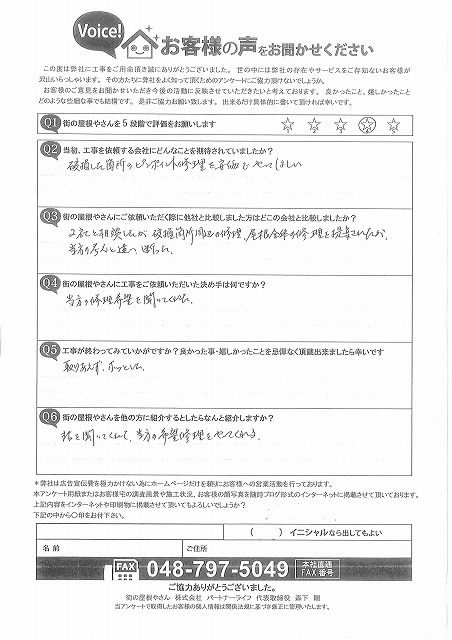 Voice!
お客様の声をお聞かせください
この度は弊社に工事をご用命頂き誠にありがとうございました。世の中には弊社の存在やサービスをご存知ないお客様が
沢山いらっしゃいます。その方たちに弊社をよく知って頂くためのアンケートにご協力頂けないでしょうか。
お客様のご意見をお聞かせいただき今後の活動に反映させていただきたいと考えております。良かったこと、嬉しかったこと
どのような些細な事でも結構です。是非ご協力お願い致します。出来るだけ具体的に書いて頂ければ幸いです。
Q1 街の屋根やさんを5段階で評価をお願いします
1 2 3 4 5
Q2 当初、工事を依頼する会社にどんなことを期待されていましたか?
破損した箇所のピンポイントの修理を安価でやってほしい
Q3 街の屋根やさんにご依頼いただく際に他社と比較しました方はどこの会社と比較しましたか?
2社と相談したが、破損箇所周辺の修理、屋根全体の修理を提案されたが、
当方の考えと違い断った。
Q4 街の屋根やさんに工事をご依頼いただいた決め手は何ですか?
当方の修理希望を聞いてくれた。
Q5 工事が終わってみていかがですか?良かった事・嬉しかったことを忌憚なく頂戴出来ましたら幸いです
取りあえず、ホッとした。
Q6 街の屋根やさんを他の方に紹介するとしたらなんと紹介しますか?
話を聞いてくれて、当方の希望修理をやってくれる。
*弊社は広告宣伝費を極力かけない為にホームページだけを頼りにお客様への営業活動を行っております。
本アンケート用紙またはお客様宅の調査風景や施工状況、お客様の顔写真を随時ブログ形式のインターネットに掲載させて頂いております。
上記内容をインターネットや印刷物に掲載させて頂いてもよろしいでしょうか?
下記の中から〇印をお付下さい。
( ) イニシャルなら出してもよい
名前 ご住所
FAX 048-797-5049 本社直通 FAX番号
ご協力ありがとうございました。
街の屋根やさん 株式会社 パートナーライフ 代表取締役 森下 剛
当アンケートで取得したお客様の個人情報は関係法規に基づき厳正に管理いたします。